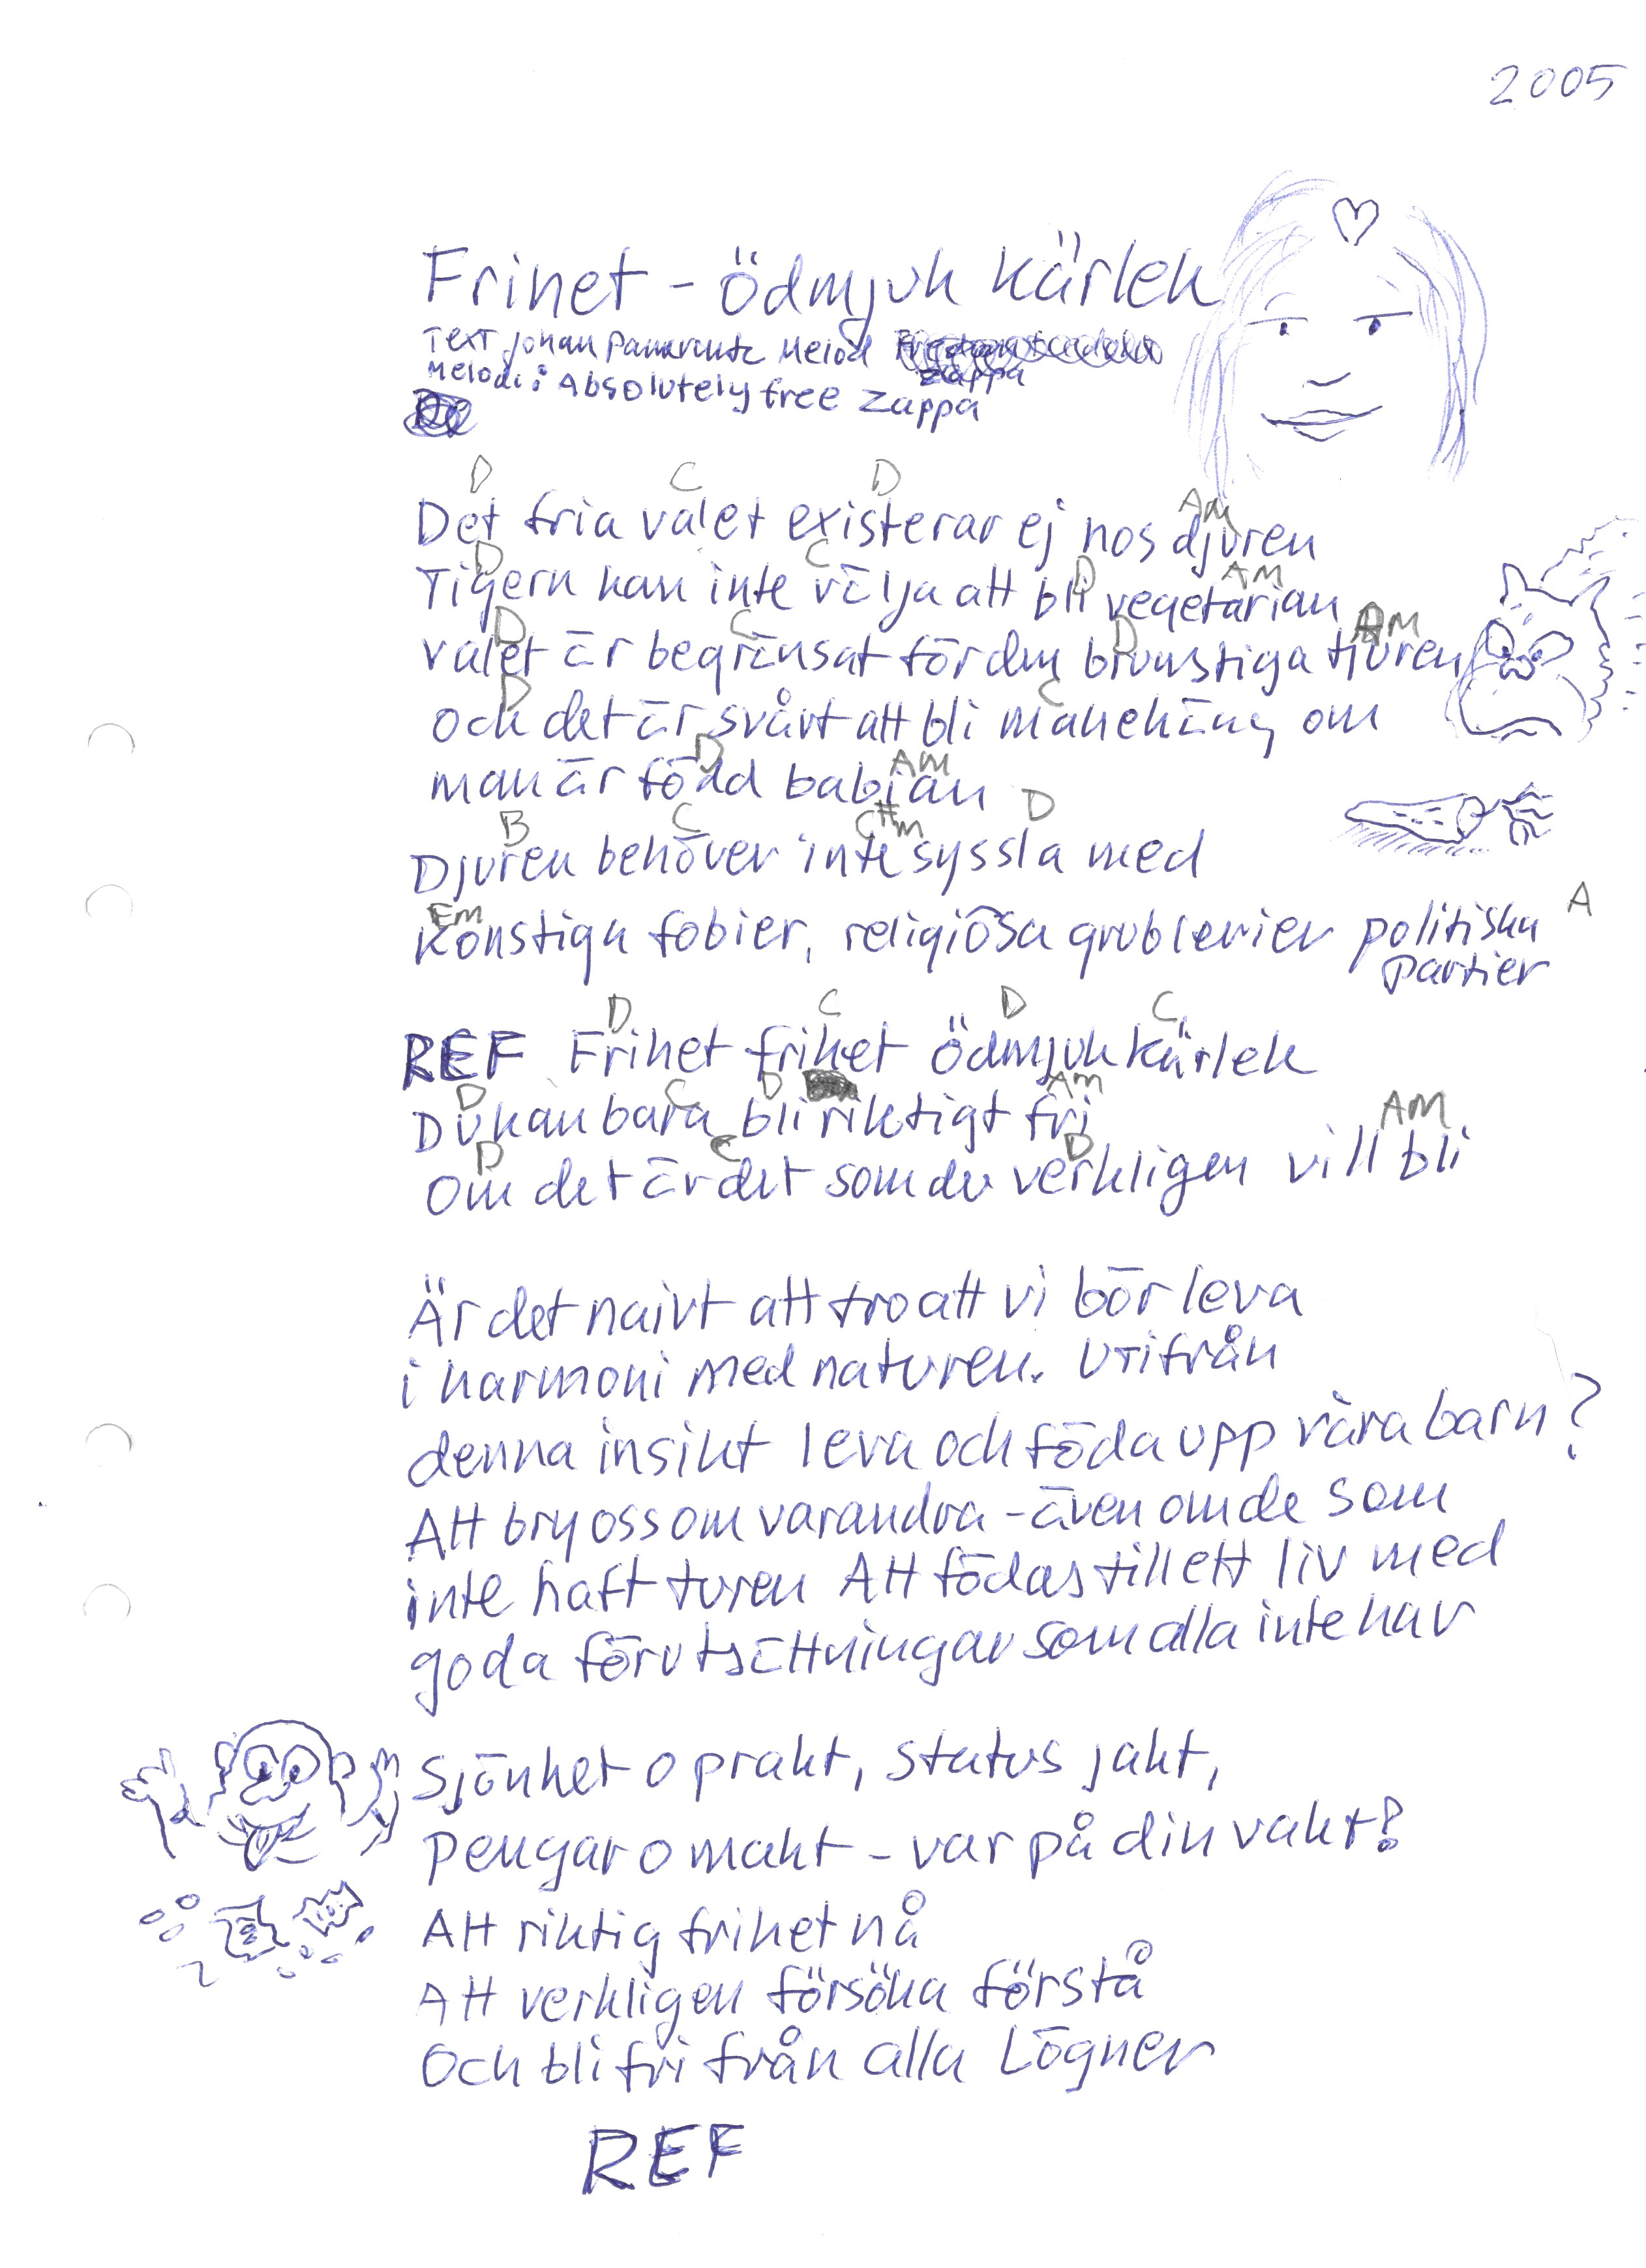 2005
Frihet - ödmjuk kärlek
Text Johan Melod
Zappa
Melodi: Absolutely free Zappa
D C D Am
Det fria valet existerar ej hos djuren
D C D Am
Tigern kan inte välja att bli vegetarian
D C D Am
valet är begränsat för den brunstiga tjuren
D C
och det är svårt att bli mannekäng om
D Am
man är född babian
B C C#m D
Djuren behöver inte syssla med
Em A
Konstiga fobier, religiösa grublerier politiska
partier
D C D C
REF Frihet frihet ödmjuk kärlek
D C D Am
Du kan bara bli riktigt fri
D C D Am
om det är det som du verkligen vill bli
Är det naivt att tro att vi bör leva
i harmoni med naturen. Utifrån
denna insikt leva och föda upp våra barn?
Att bry oss om varandra - även om de som
inte haft turen Att födas till ett liv med
goda förutsättningar som alla inte har
Sjönhet o prakt, status jakt,
Pengar o makt - var på din vakt!
Att riktig frihet nå
Att verkligen försöka förstå
Och bli fri från alla Lögner
REF